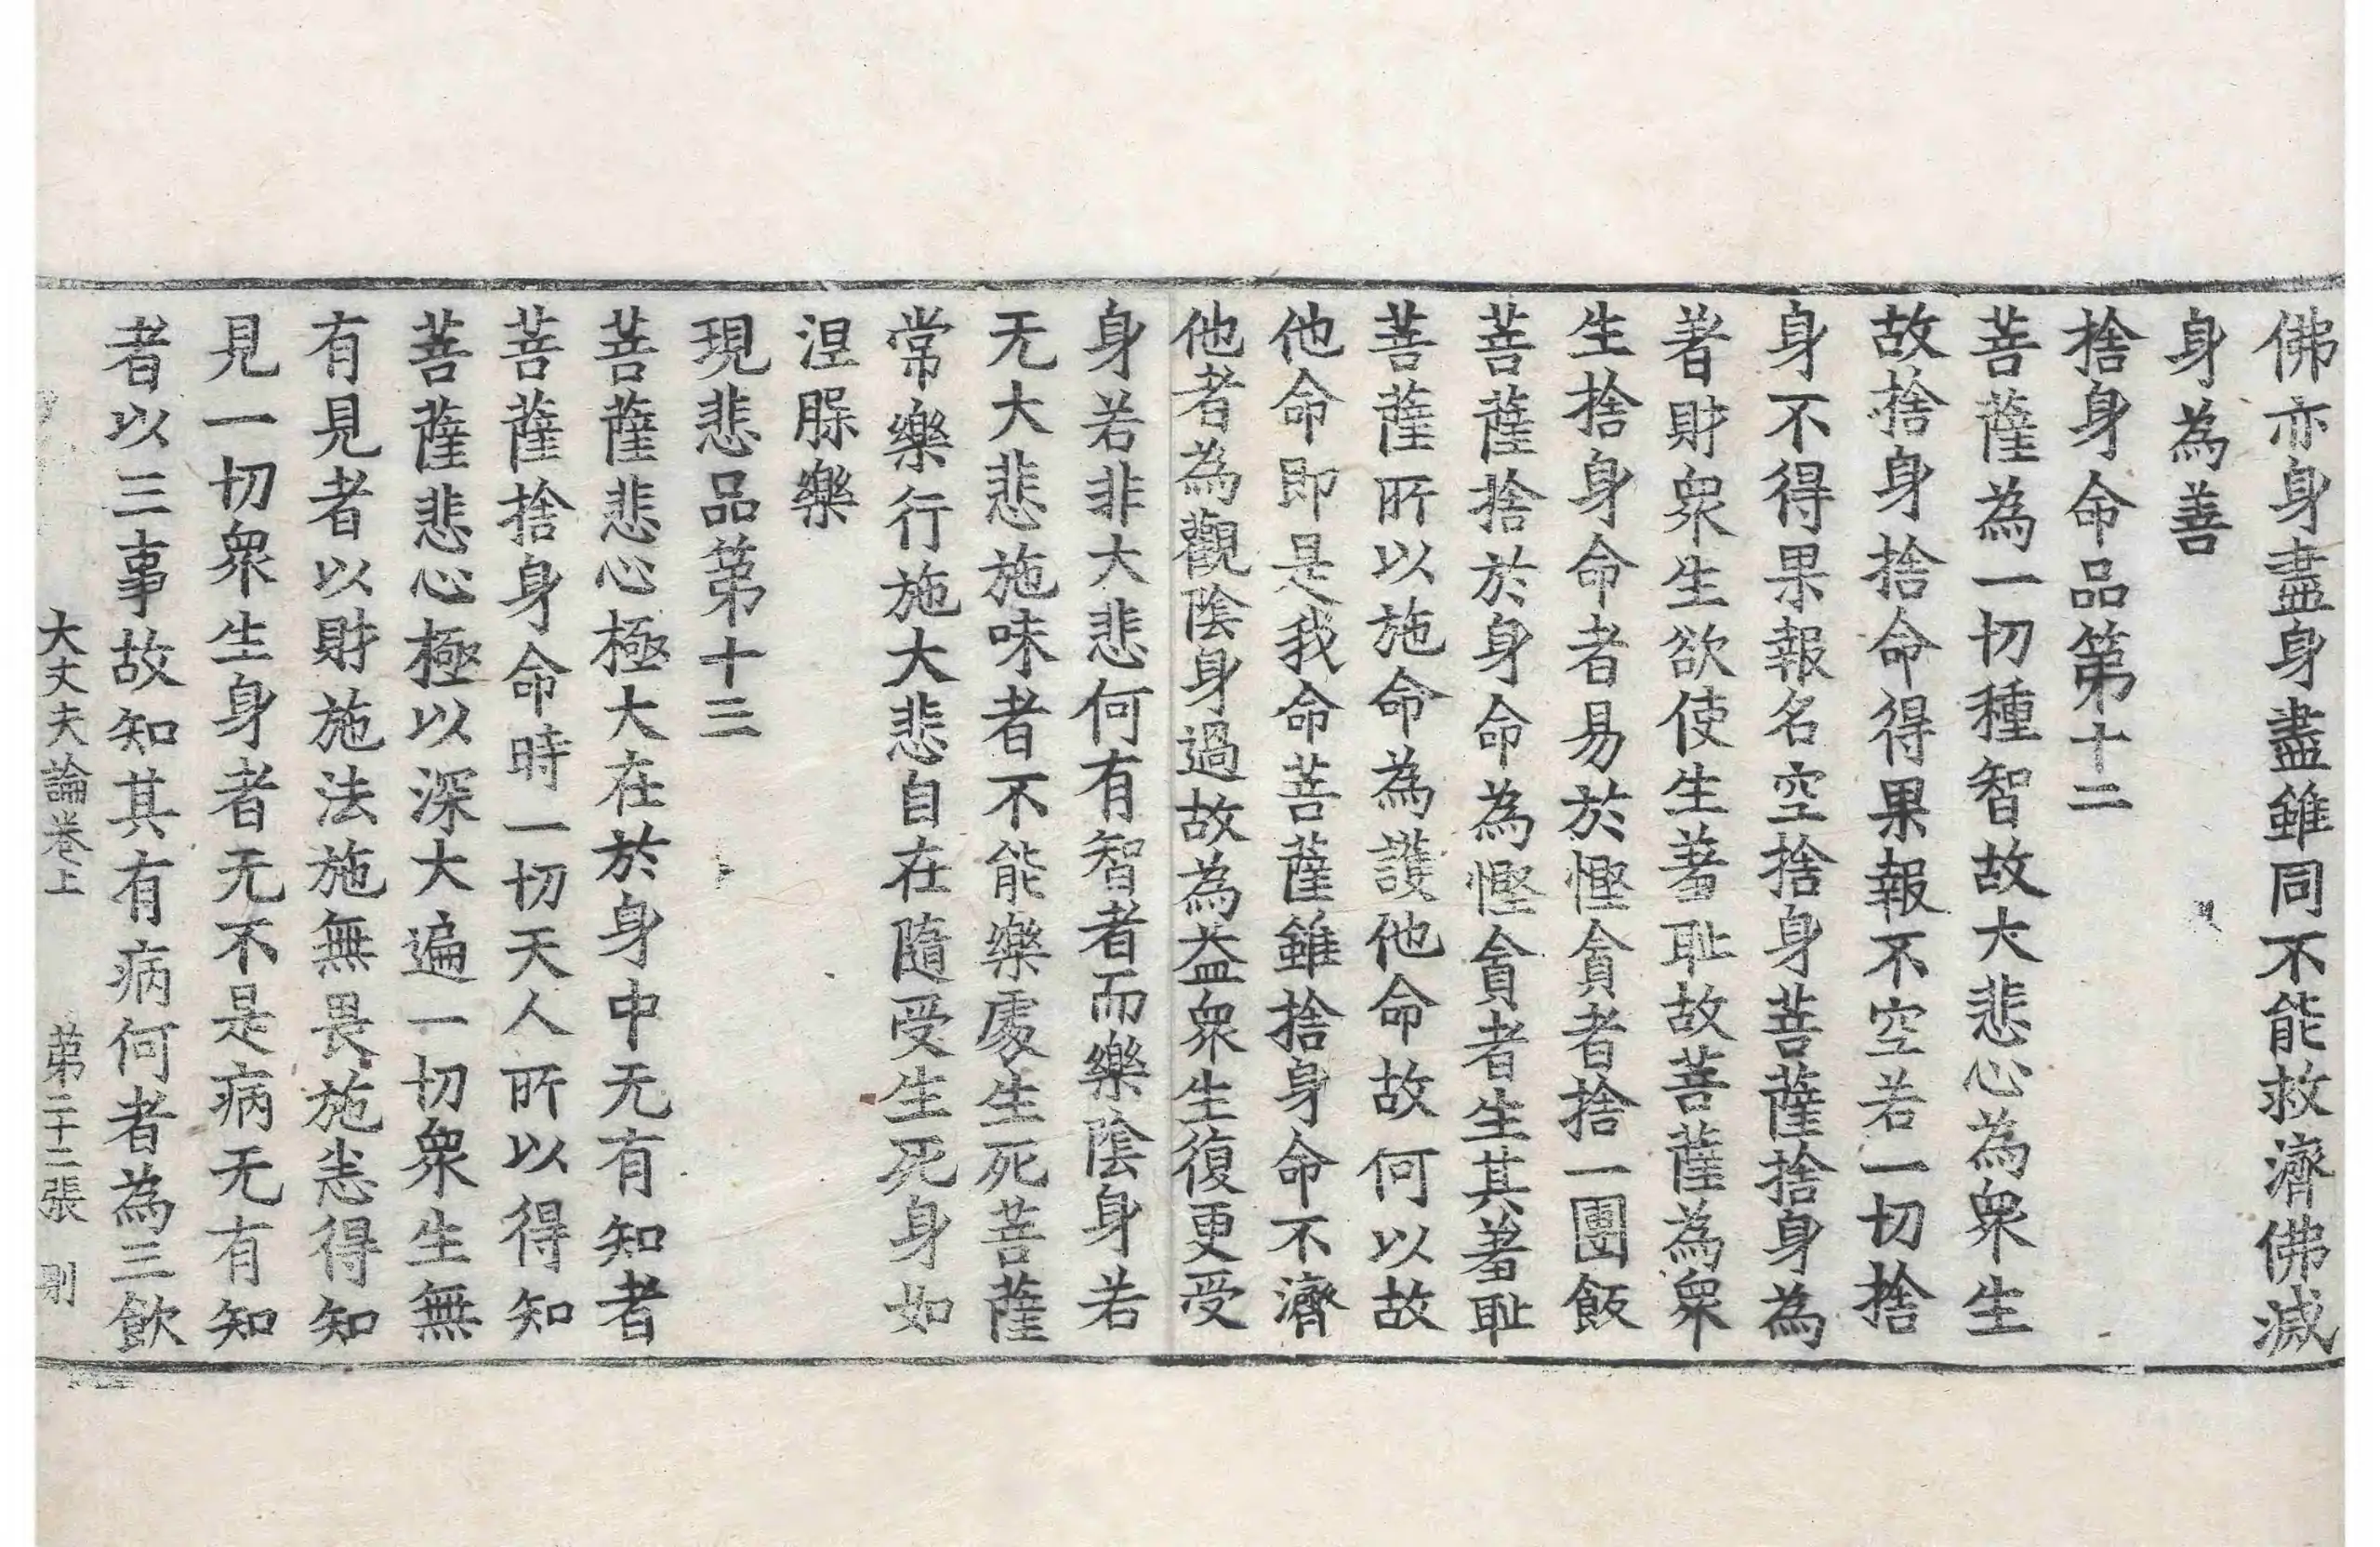 佛亦身盡身盡雖同不能救濟佛滅
身為善
捨身命品第十二
菩薩為一切種智故大悲心為衆生
故捨身捨命得果報不空若一切捨
身不得果報名空捨身菩薩捨身為
著財衆生欲使生羞耻故菩薩為衆
生捨身命者易於慳貪者捨一團飯
菩薩捨於身命為慳貪者生其羞耻
菩薩所以施命為護他命故何以故
他命即是我命菩薩雖捨身命不濟
他者為觀陰身過故為益衆生復更受
身若非大悲何有智者而樂陰身若
无大悲施味者不能樂處生死菩薩
常樂行施大悲自在隨受生死身如
涅槃樂
現悲品第十三
菩薩悲心極大在於身中无有知者
菩薩捨身命時一切天人所以得知
菩薩悲心極以深大遍一切衆生無
有見者以財施法施無畏施悉得知
見一切衆生身者无不是病无有知
者以三事故知其有病何者為三飲
大丈夫論卷上　第二十二張　則